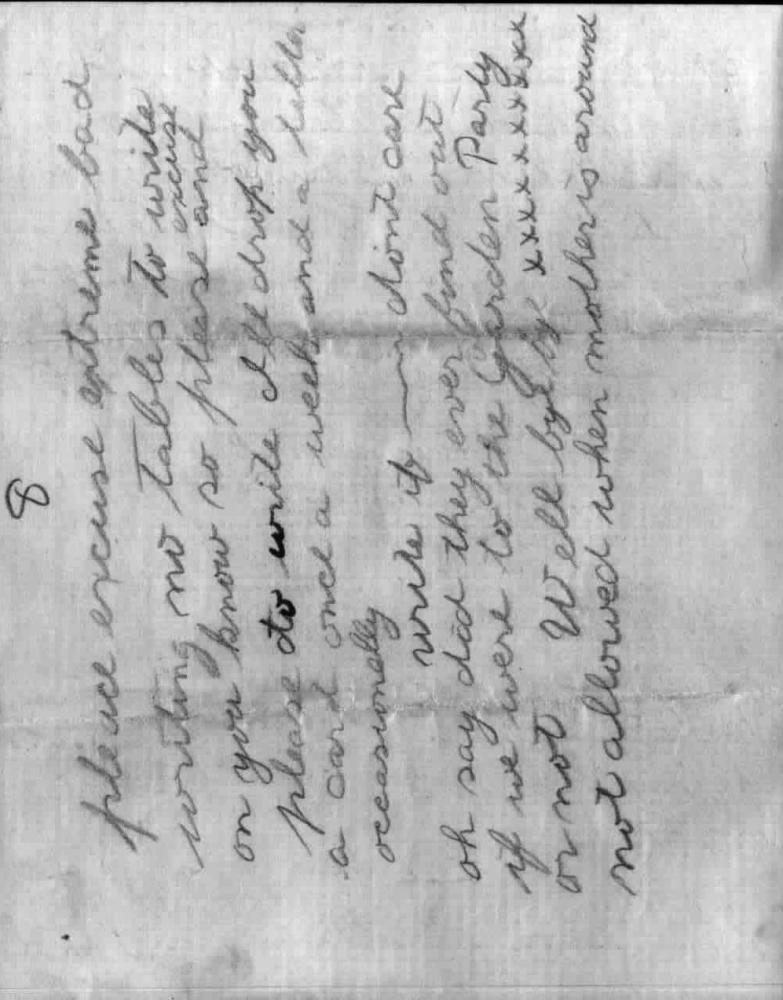 8
please excuse extreme bad
writing no tables to write
on you know so please excuse and
please do write I'll drop you
a card once a week and a letter
occasionally
write if — dont care
oh say did they ever find out
if we were to the Garden Party
or not Well bye bye xxxxxxxxxx
not allowed when mother is around